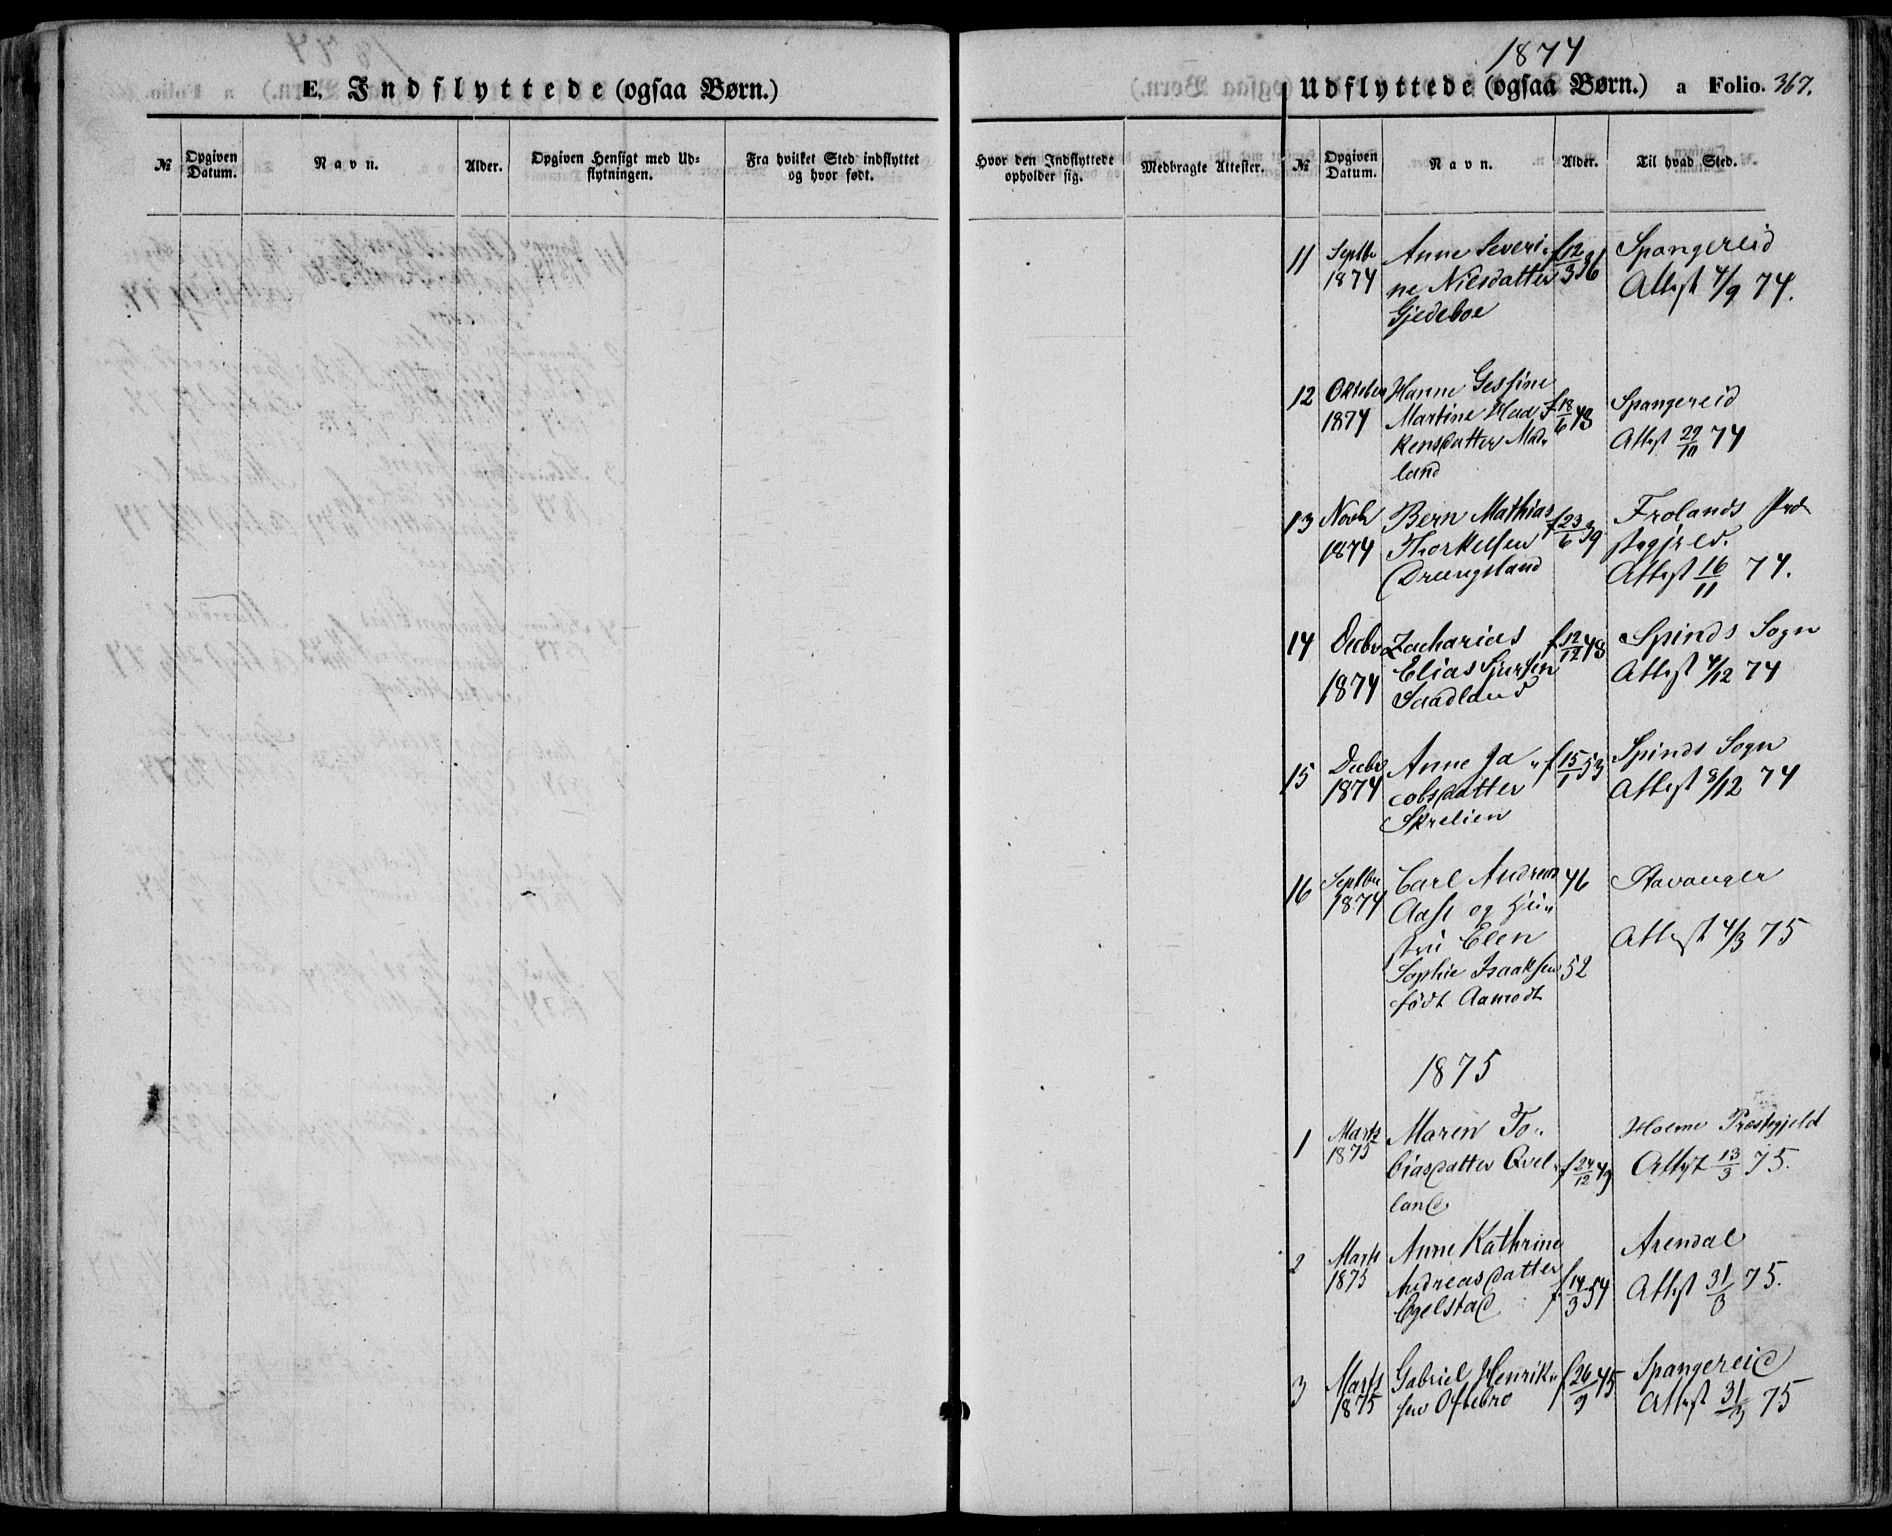 E. Indflyttede (ogsaa Børn.)
№
Opgiven Datum.
Navn.
Alder.
Opgiven Hensigt med Ud-
flytningen.
Fra hvilket Sted indflyttet
og hvor født.
Hvor den Indflyttede
opholder sig.
Medbragte Attester.
1874
Udflyttede (ogsaa Børn.) a Folio. 367.
№
Opgiven Datum.
Navn.
Alder.
Til hvad Sted.
11 Septbr Anne Severi- f 12/3 36 Spangereid
1874 ne Nilsdatter Attest 4/9 74.
Gjedeboe
12 Oktober Hanne Gesine
1874 Martine f 18/6 43 Spangereid
kensdatter Attest 29/10 74
land
13 Novbr Bern Mathias f 23/6 39 Frolands Præ-
1874 Thorkelsen stegjeld.
Drængsland Attest 16/11 74.
14 Decbr Zacharias f 12/12 48 Spinds Sogn
1874 Elias Sjursen Attest 4/12 74
Saadland
15 Decbr Anne Ja- f 15/1 53 Spinds Sogn
1874 cobsdatter Attest 8/12 74
Skrelien
16 Septbr Carl Andreas 46 Stavanger
1874 og Hu-
stru Elen Attest 4/3 75
Sophie Isaaksen 52
født Aamodt
1875
1 Marts Maren To- Holme Præstegjeld
1875 biasdatter Qvel- f 24/12 49 Attest 13/3 75.
land
2 Marts Anne Kathrine Arendal
1875 Andreasdatter f 14/3 54 Attest 31/3 75.
Egelstad
3 Marts Gabriel Henrik- f 26/9 45 Spangereid
1875 sen Oftebro Attest 31/3 75